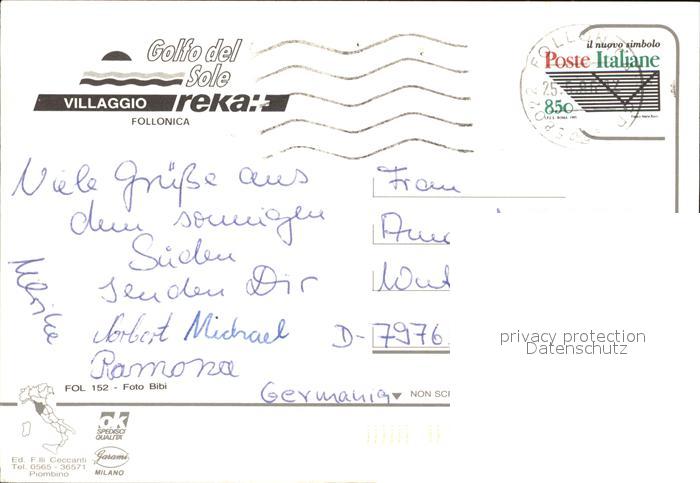 Golfo del
Sole
VILLAGGIO reka:+
FOLLONICA
il nuovo simbolo
Poste Italiane
850
FOLLONICA
Viele Grüße aus
dem sonnigen
Süden
senden Dir
Norbert Michael
Ramona
Frau
D-7976
Germania
FOL 152 - Foto Bibi
NON SCR
ok
SPEDISCI
QUALITA'
Garami
MILANO
Ed. F.lli Ceccanti
Tel. 0565 - 36571
Piombino
privacy protection
Datenschutz